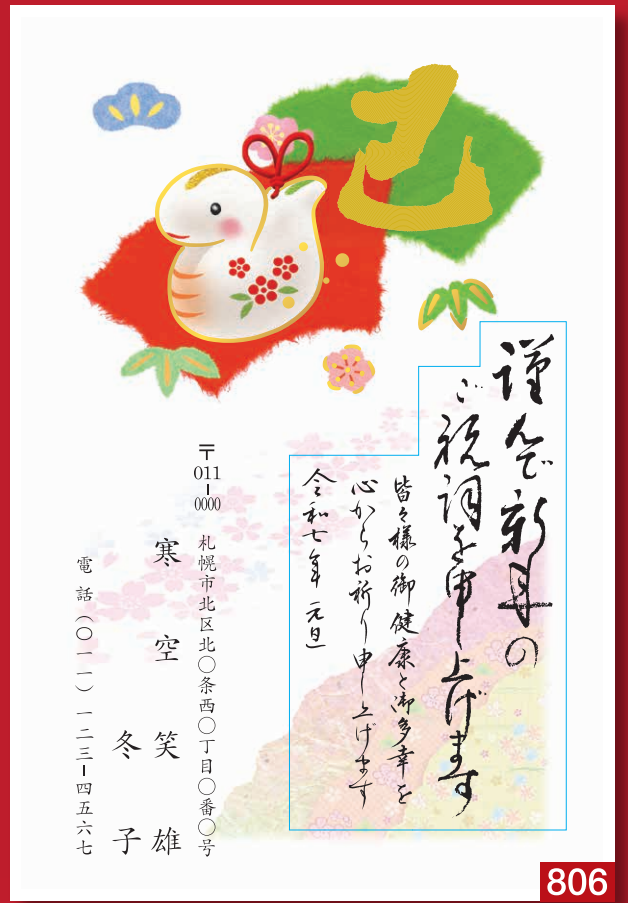 巳
謹んで新年の
ご祝詞を申し上げます
皆々様の御健康と御多幸を
心からお祈り申し上げます
令和七年 元旦
〒011-0000
札幌市北区北〇条西〇丁目〇番〇号
寒空笑雄
冬子
電話(〇一一)一二三-四五六七
806